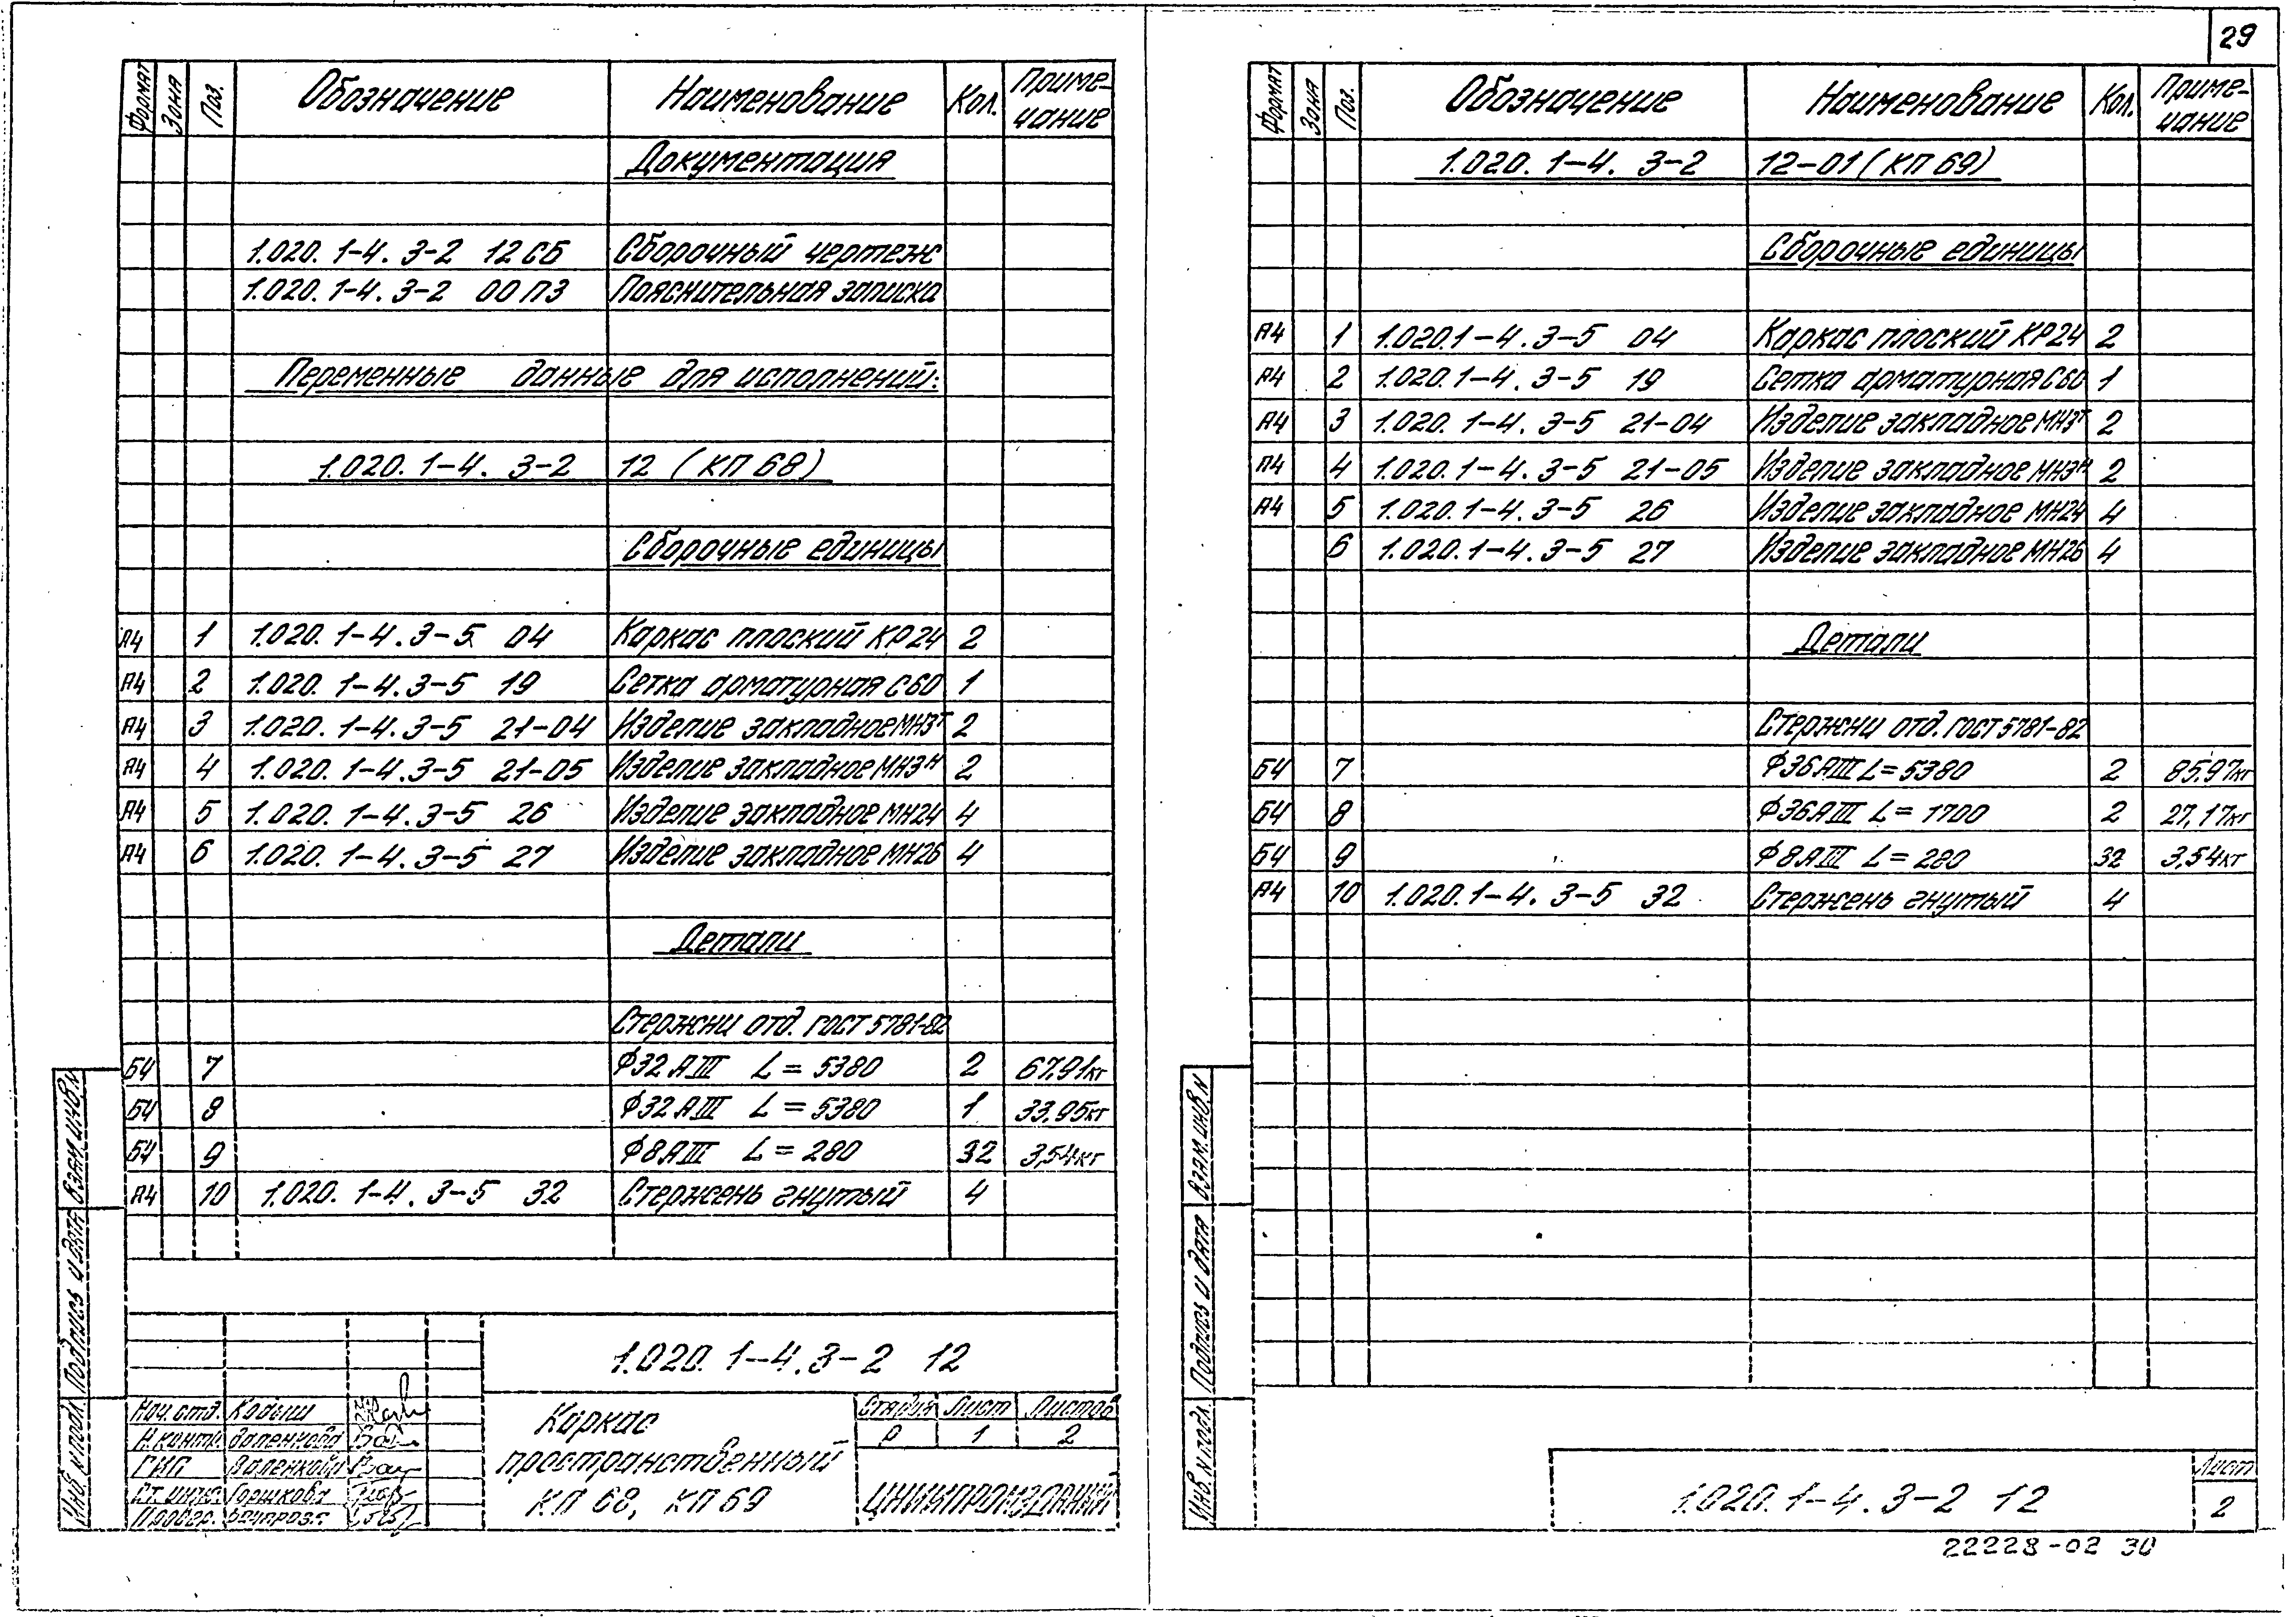 29
Формат Зона Поз. Обозначение Наименование Кол. Приме-
чание
Документация
1.020. 1-4. 3-2 12 СБ Сборочный чертеж
1.020. 1-4. 3-2 00 ПЗ Пояснительная записка
Переменные данные для исполнений:
1.020. 1-4. 3-2 12 (КП 68)
Сборочные единицы
А4 1 1.020. 1-4. 3-5 04 Каркас плоский КР24 2
А4 2 1.020. 1-4. 3-5 19 Сетка арматурная С60 1
А4 3 1.020. 1-4. 3-5 21-04 Изделие закладное МН3т 2
А4 4 1.020. 1-4. 3-5 21-05 Изделие закладное МН3н 2
А4 5 1.020. 1-4. 3-5 26 Изделие закладное МН24 4
А4 6 1.020. 1-4. 3-5 27 Изделие закладное МН26 4
Детали
Стержни отд. ГОСТ 5781-82
БЧ 7 Ф32 АIII L = 5380 2 67,91кг
БЧ 8 Ф32 АIII L = 5380 1 33,95кг
БЧ 9 Ф8АIII L = 280 32 3,54кг
А4 10 1.020. 1-4. 3-5 32 Стержень гнутый 4
Взам. инв. N
Подпись и дата
Инв. N подл.
1.020. 1-4. 3-2 12
Нач. отд. Кодыш
Н. контр. Валенкова
ГИП Валенкова
Ст. инж. Горшкова
Провер.
Каркас
пространственный
КП 68, КП 69
Стадия Лист Листов
Р 1 2
ЦНИИПРОМЗДАНИЙ
Формат Зона Поз. Обозначение Наименование Кол. Приме-
чание
1.020. 1-4. 3-2 12-01 (КП 69)
Сборочные единицы
А4 1 1.020.1-4. 3-5 04 Каркас плоский КР24 2
А4 2 1.020.1-4. 3-5 19 Сетка арматурная С60 1
А4 3 1.020. 1-4. 3-5 21-04 Изделие закладное МН3т 2
А4 4 1.020. 1-4. 3-5 21-05 Изделие закладное МН3н 2
А4 5 1.020. 1-4. 3-5 26 Изделие закладное МН24 4
6 1.020. 1-4. 3-5 27 Изделие закладное МН26 4
Детали
Стержни отд. ГОСТ 5781-82
БЧ 7 Ф36АIII L = 5380 2 85,97кг
БЧ 8 Ф36АIII L = 1700 2 27,17кг
БЧ 9 Ф8АIII L = 280 32 3,54кг
А4 10 1.020. 1-4. 3-5 32 Стержень гнутый 4
Взам. инв. N
Подпись и дата
Инв. N подл.
1.020. 1-4. 3-2 12
Лист
2
22228-02 30